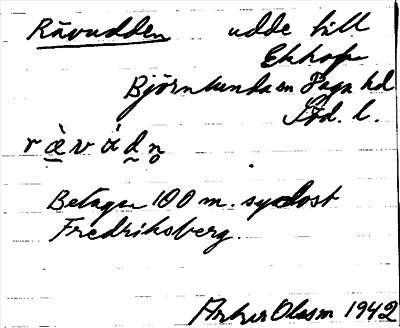 Rävudden udde till
Ekhop
Björnlunda sn Daga hd
Söd. l.
r ä̀ v ú d n
Belägen 100 m. sydost
Fredriksberg.
Olsson 1942